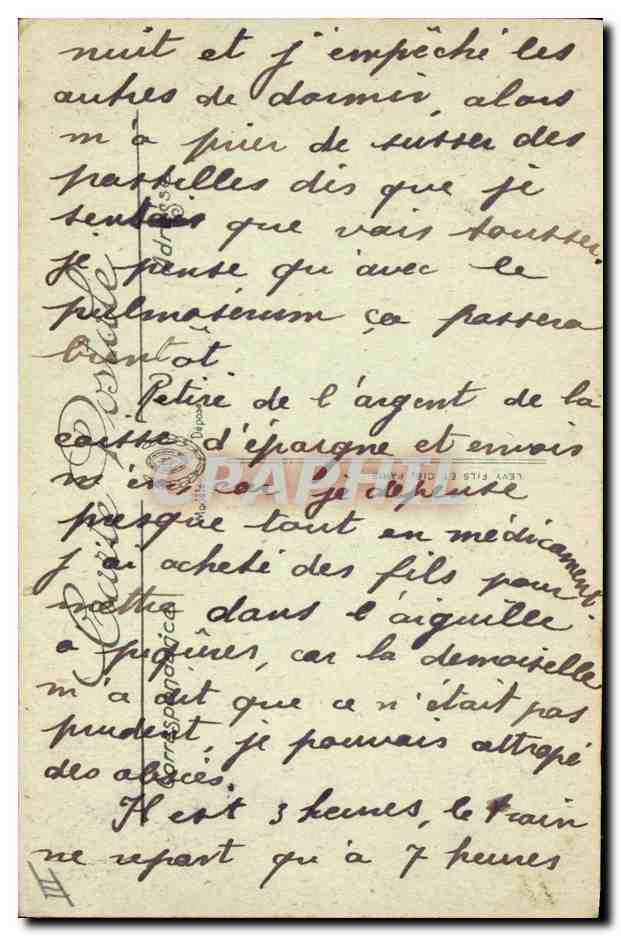 nuit et j'empêché les
autres de dormir, alors
m'a prier de susser des
passilles dis que je
sentais que vais tousser.
je pense qu'avec le
pulmosérum ça passera
bientôt
Retire de l'argent de la
caisse d'épargne et envois
m'en car je dépense
presque tout en médicament.
j'ai acheté des fils pour
mettre dans l'aiguille
a piqûres, car la demoiselle
m'a dit que ce n'était pas
prudent, je pouvais attrapé
des abcès.
Il est 3 heures, le train
ne repart qu'à 7 heures
III
Carte Postale
Correspondance
Adresse
Modèle Déposé
LEVY FILS ET CIE, PARIS
CPAPHIL